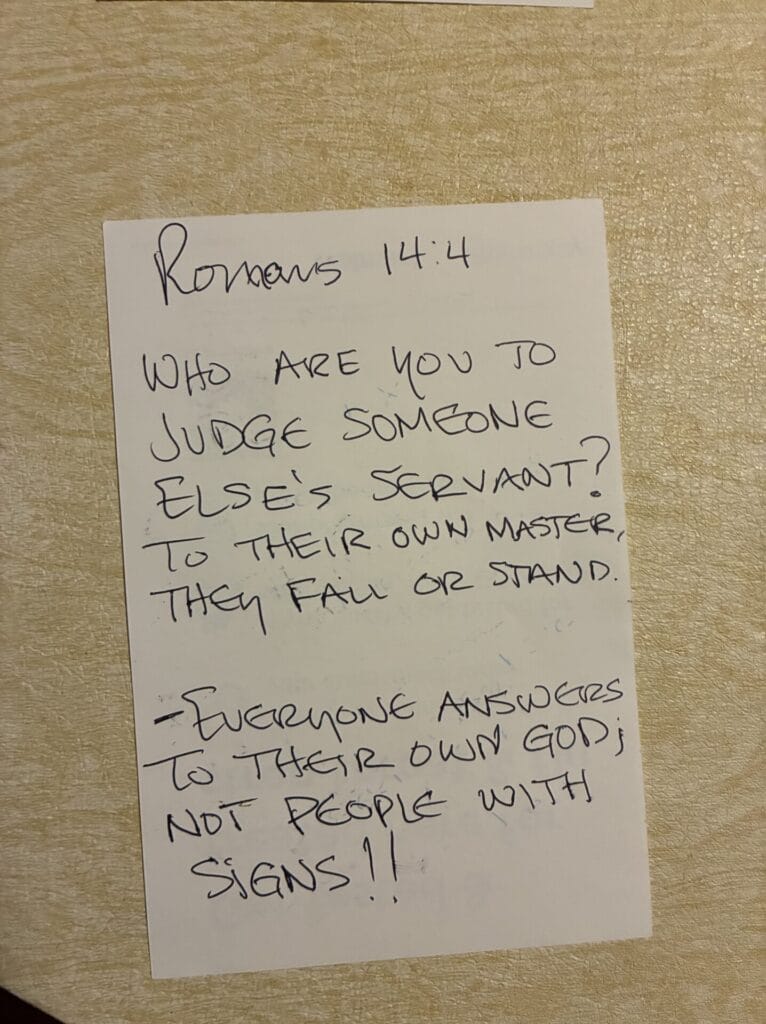 Romans 14:4
WHO ARE YOU TO
JUDGE SOMEONE
ELSE'S SERVANT?
TO THEIR OWN MASTER,
THEY FALL OR STAND.
-EVERYONE ANSWERS
TO THEIR OWN GOD;
NOT PEOPLE WITH
SIGNS!!